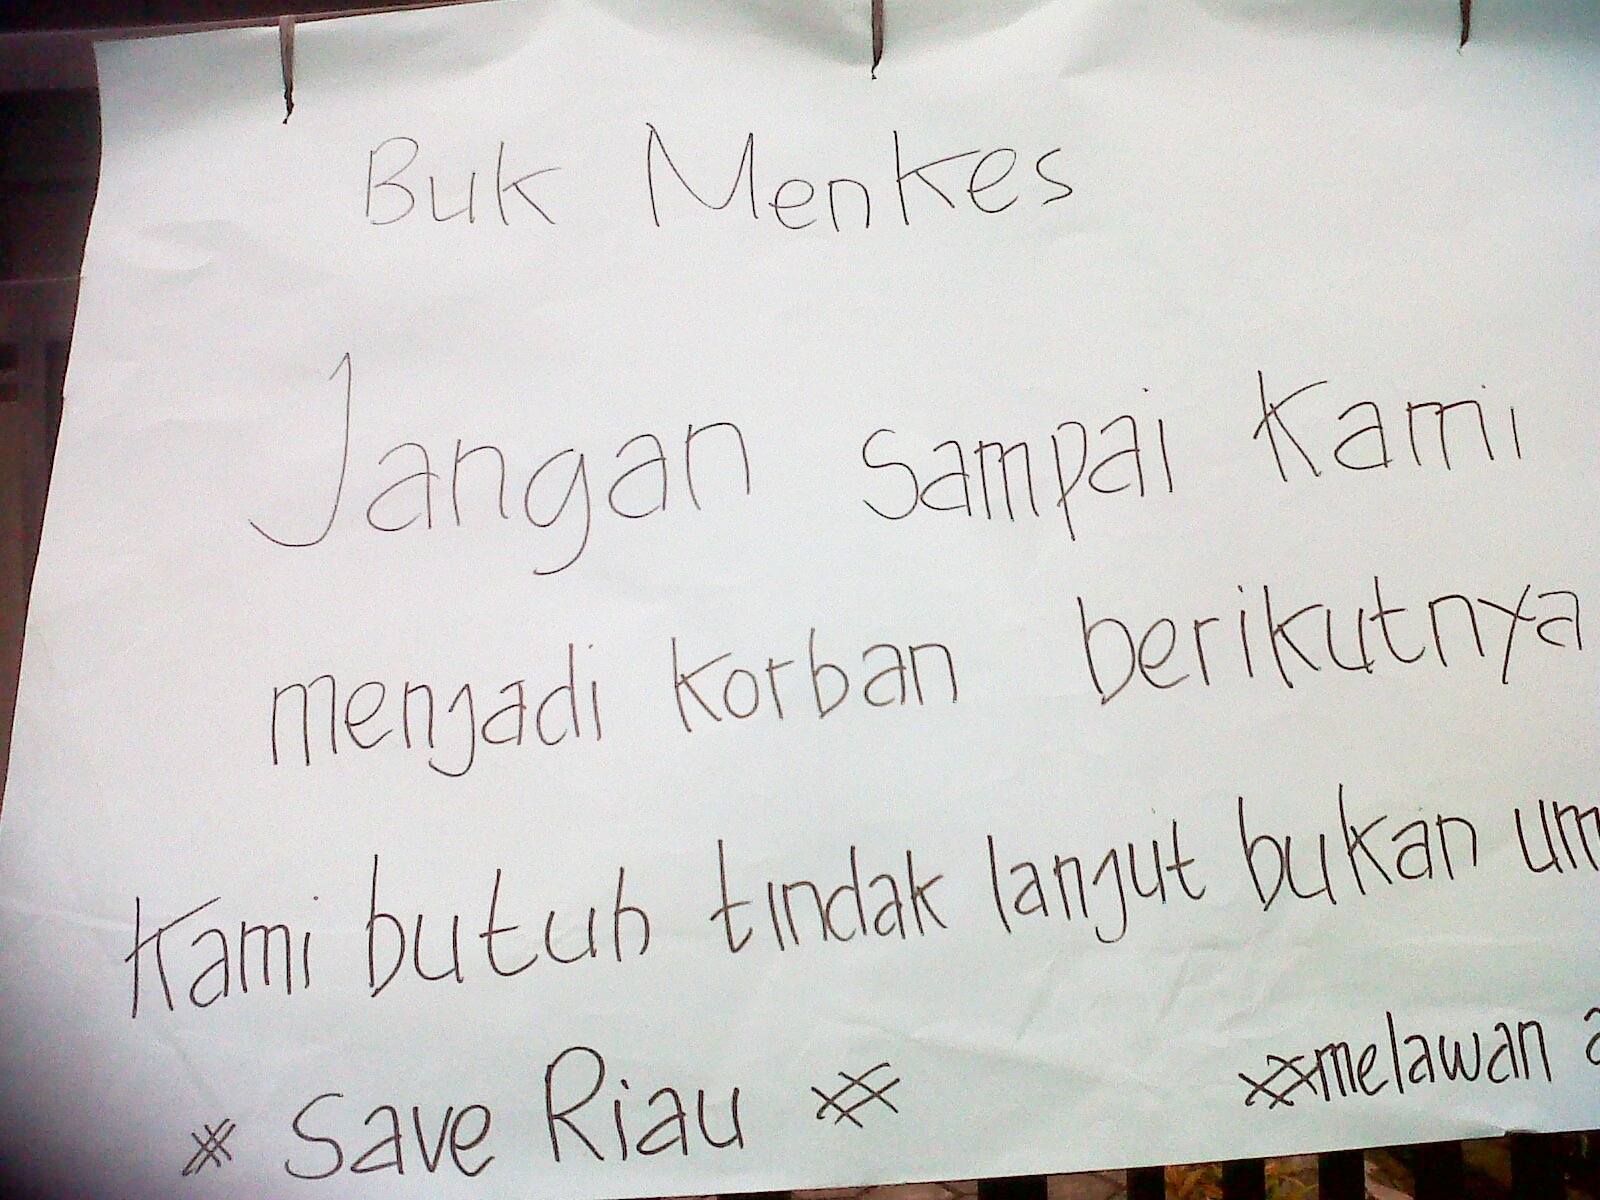 Buk Menkes
Jangan sampai Kami
menjadi korban berikutnya
Kami butuh tindak lanjut bukan
# Save Riau #
#melawan